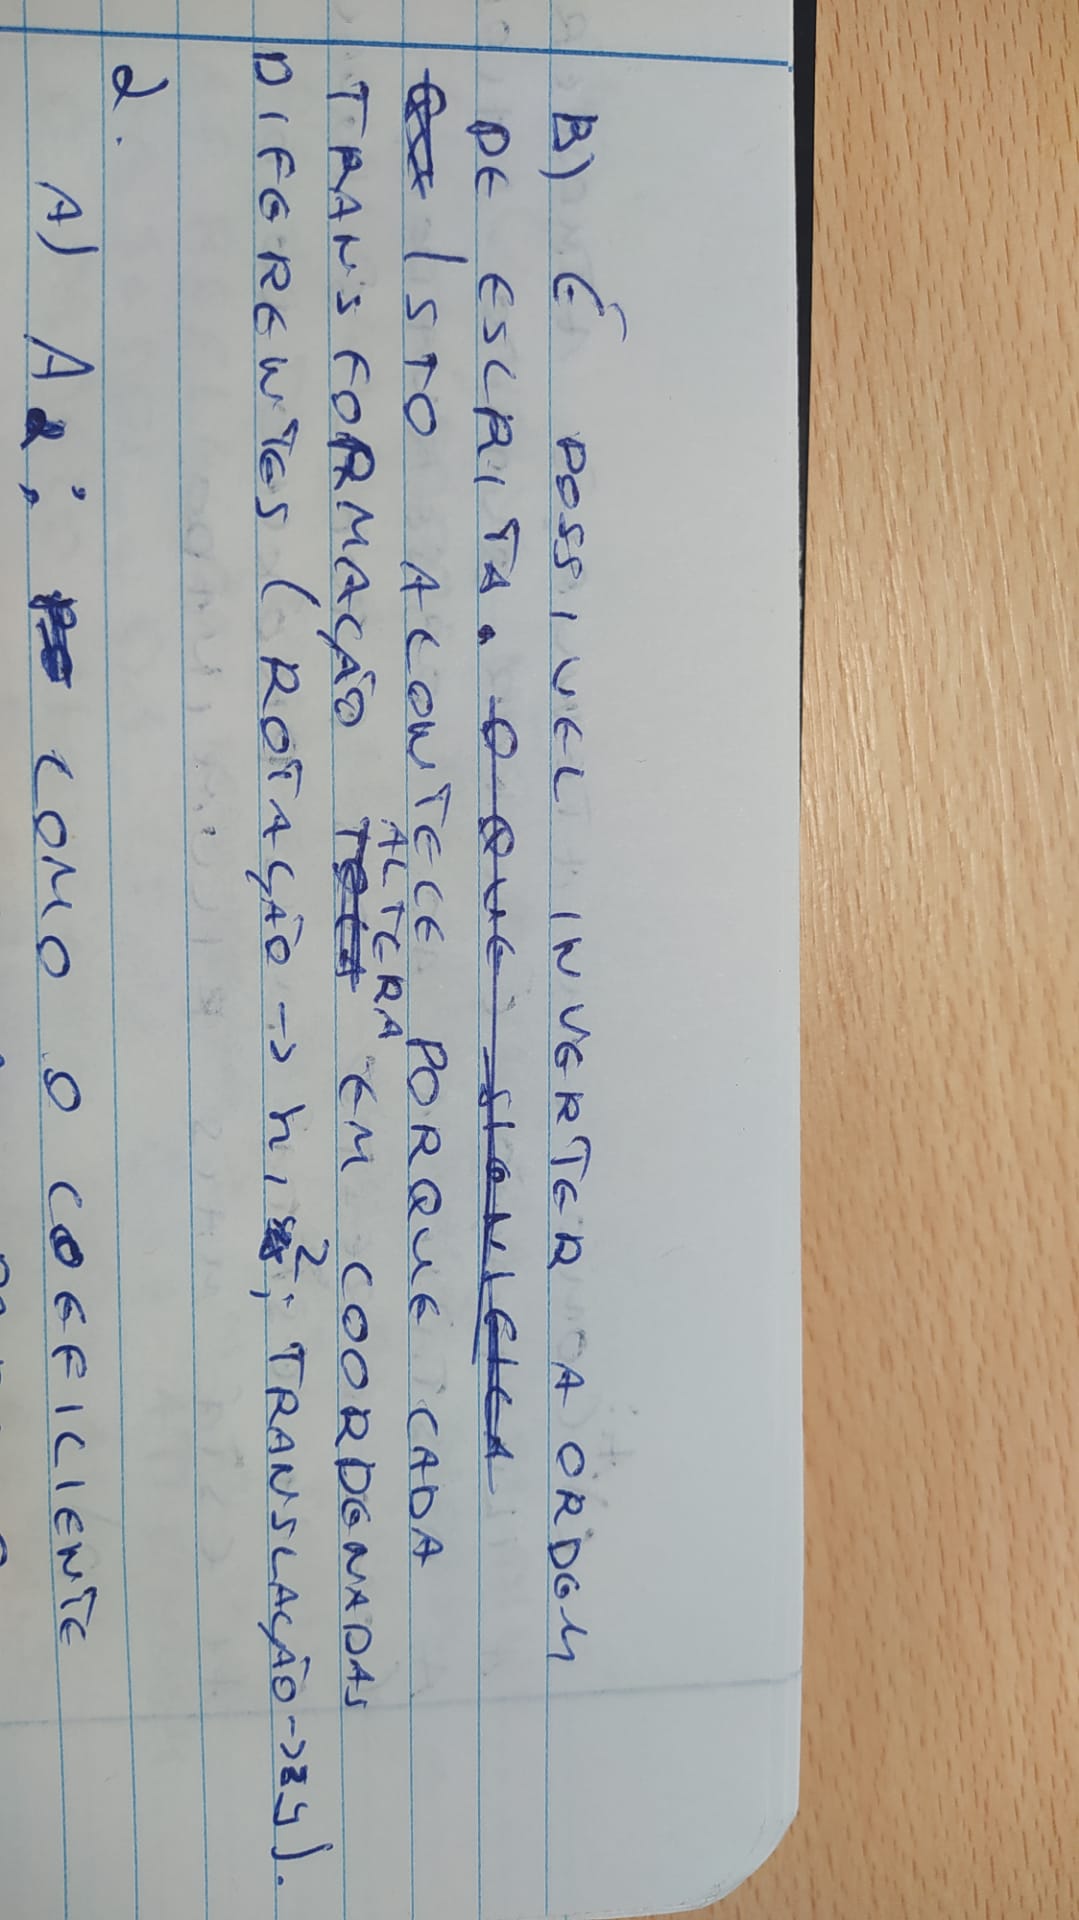 B) É POSSIVEL INVERTER A ORDEM
DE ESCRITA. O QUE SIGNIFICA
ISTO ACONTECE PORQUE CADA
TRANSFORMAÇÃO ALTERA EM COORDENADAS
DIFERENTES (ROTAÇÃO -> x, z; TRANSLAÇÃO -> y).
2.
A) A2; COMO O COEFICIENTE